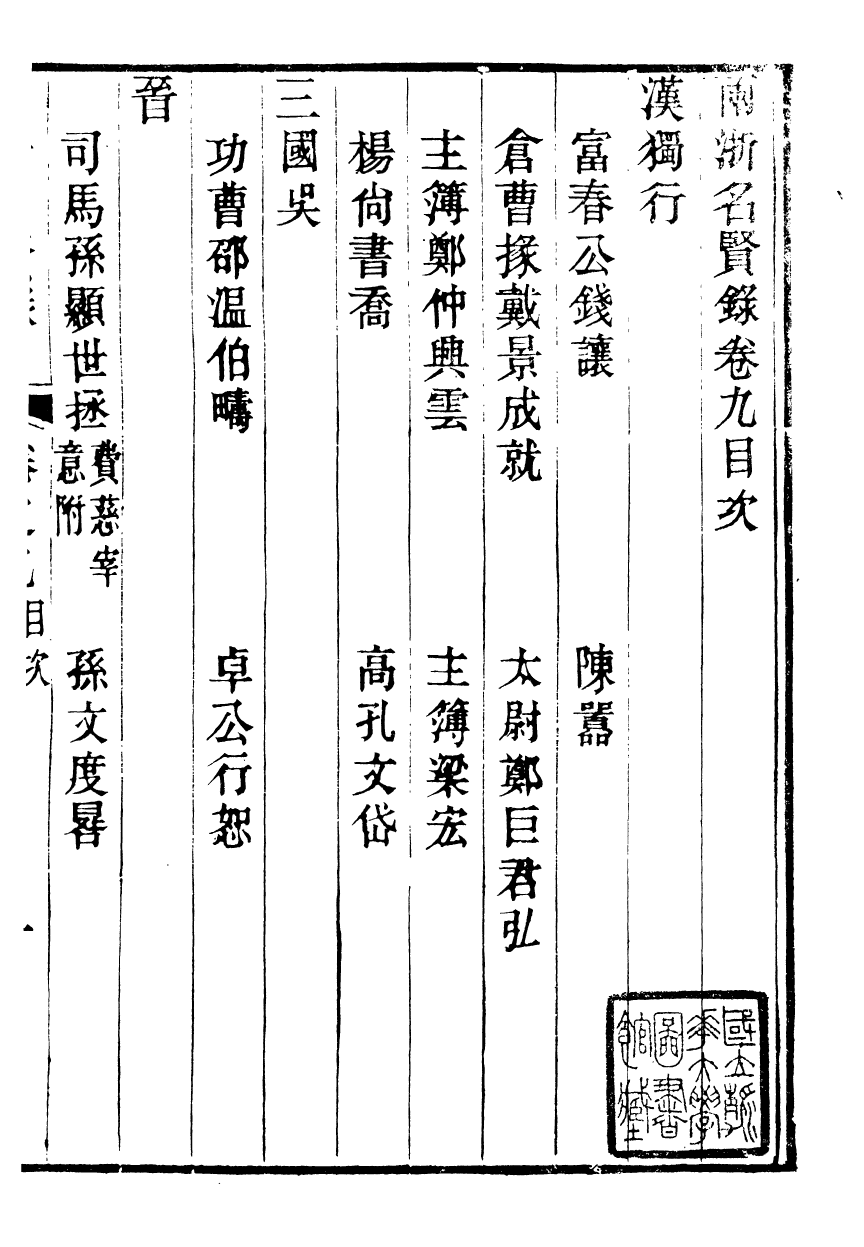 兩浙名賢錄卷九目次
漢獨行
富春公錢讓 陳囂
倉曹掾戴景成就 太尉鄭巨君弘
主簿鄭仲興雲 主簿梁宏
楊尙書喬 高孔文岱
三國吳
功曹邵温伯疇 卓公行恕
晉
司馬孫顯世拯 費慈宰意附 孫文度晷
目次
國立清華大學圖書館藏